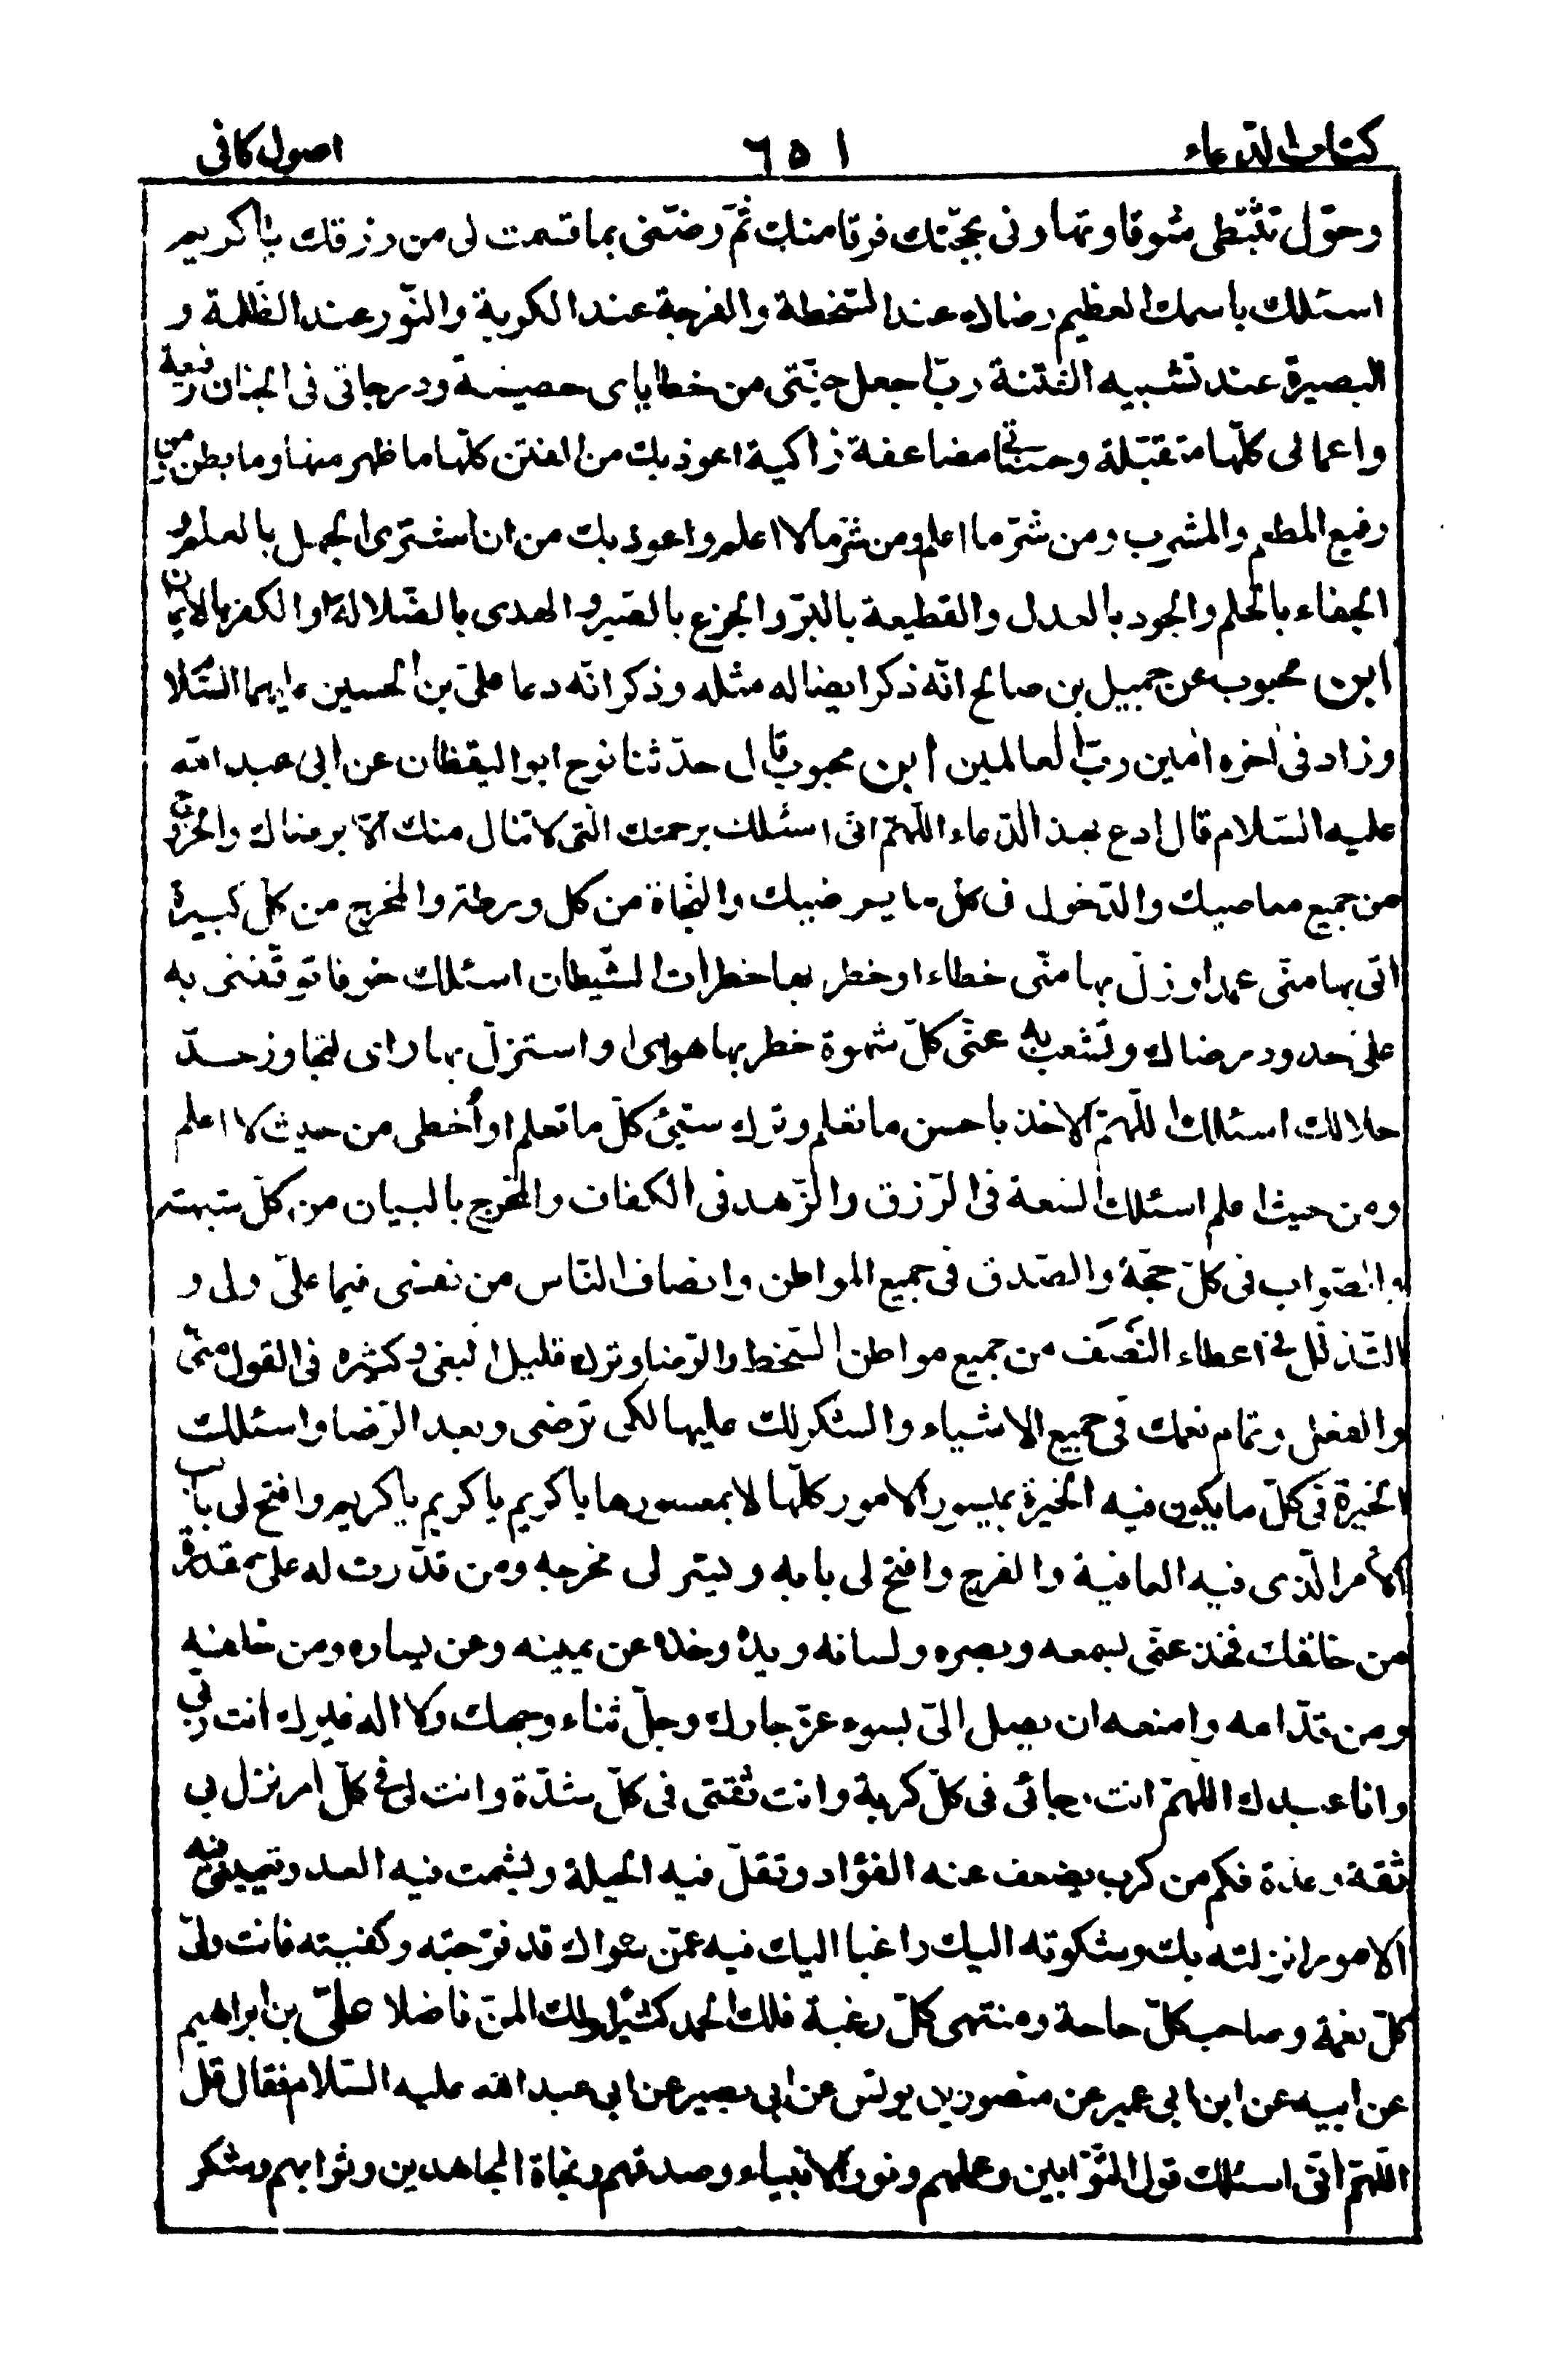 كتاب الدعاء ٦٥١ اصول كافى
وحوّل تثبّطى شوقا وتهاونى بحجّتك فرقا منك ثمّ رضّنى بما قسمت لى من رزقك يا كريم
اسئلك باسمك العظيم رضاك عند السّخطة والفرجة عند الكربة والنّور عند الظّلمة و
البصيرة عند تشبيه الفتنة ربّ اجعل جنّتى من خطاياى حصينة ودرجاتى فى الجنان رفيعة
واعمالى كلّها متقبّلة وحسناتى مضاعفة زاكية اعوذ بك من الفتن كلّها ما ظهر منها وما بطن من
رفيع المطعم والمشرب ومن شرّ ما اعلم ومن شرّ ما لا اعلم واعوذ بك من ان اشترى الجهل بالعلم و
الجفاء بالحلم والجور بالعدل والقطيعة بالبرّ والجزع بالصّبر و الهدى بالضّلالة او الكفر بالايمان
ابن محبوب عن جميل بن صالح انّه ذكر ايضا له مثله وذكر انّه دعا علىّ بن الحسين عليهما السّلا
وزاد فى اخره امين ربّ العالمين ابن محبوب قال حدّثنا نوح ابو اليقظان عن ابى عبد الله
عليه السّلام قال ادع بهذا الدّعاء اللّهمّ انّى اسئلك برحمتك الّتى لا تنال منك الّا برضاك والخروج
من جميع معاصيك والدّخول فى كلّ ما يرضيك والنّجاة من كل ورطة والمخرج من كلّ كبيرة
اتى بها منّى عمد او زلّ بها منّى خطاء او خطر بها خطرات الشّيطان اسئلك خوفا توقّفنى به
على حدود رضاك وتشعب به عنّى كلّ شهوة خطر بها هواى واستزلّ بها رائى لتجاوز حدّ
حلالك اسئلك اللّهمّ الاخذ باحسن ما تعلم وترك سيّئ كلّ ما تعلم او أخطى من حيث لا اعلم
ومن حيث اعلم اسئلك السّعة فى الرّزق والزّهد فى الكفاف والمخرج بالبيان من كلّ شبهة
والصّواب فى كلّ حجّة والصّدق فى جميع المواطن وانصاف النّاس من نفسى فيما علىّ ولى و
التّذلّل فى اعطاء النَّصَف من جميع مواطن السّخط والرّضا وترك قليل البغى وكثيره فى القول منّى
والفعل وتمام نعمك فى جميع الاشياء والشّكر لك عليها لكى ترضى وبعد الرّضا واسئلك
الخيرة فى كلّ ما يكون فيه الخيرة بميسور الامور كلّها لا بمعسورها يا كريم يا كريم يا كريم وافتح لى باب
الأمر الّذى فيه العافية والفرج وافتح لى بابه ويسّر لى مخرجه ومن قدّرت له علىّ مقدرة
من خلقك فخذ عنّى بسمعه وبصره ولسانه ويده وخذه عن يمينه وعن يساره ومن خلفه
ومن قدّامه وامنعه ان يصل الىّ بسوء عزّ جارك وجلّ ثناء وجهك ولا اله غيرك انت ربّى
وانا عبدك اللّهمّ انت رجائى فى كلّ كربة وانت ثقتى فى كلّ شدّة وانت لى فى كلّ امر نزل بى
ثقة وعدّة فكم من كرب يضعف عنه الفؤاد وتقلّ فيه الحيلة ويشمت فيه العدو وتعيينى فيه
الامور انزلته بك وشكوته اليك راغبا اليك فيه عمّن سواك قد فرّجته وكفيته فانت ولىّ
كلّ نعمة وصاحب كلّ حاجة ومنتهى كلّ رغبة فلك الحمد كثيرا ولك المنّ فاضلا علىّ بن ابراهيم
عن ابيه عن ابن ابى عمير عن منصور بن يونس عن ابى بصير عن ابى عبد الله عليه السّلام فقال قل
اللّهمّ انّى اسئلك قول التّوّابين وعملهم ونور الانبياء وصدقهم ونجاة المجاهدين وثوابهم وشكر